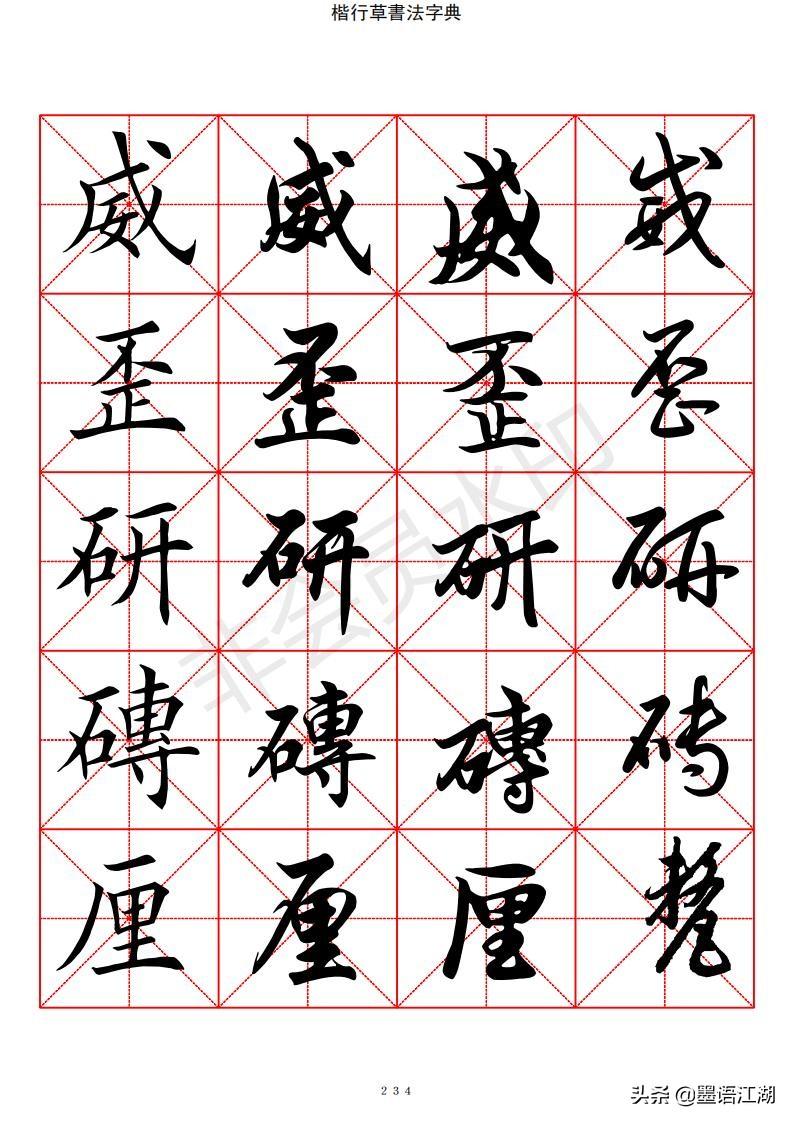 楷行草書法字典
威 威 威 威
歪 歪 歪 歪
研 研 研 研
磚 磚 磚 砖
厘 厘 厘
非会员水印
234
头条 @墨语江湖